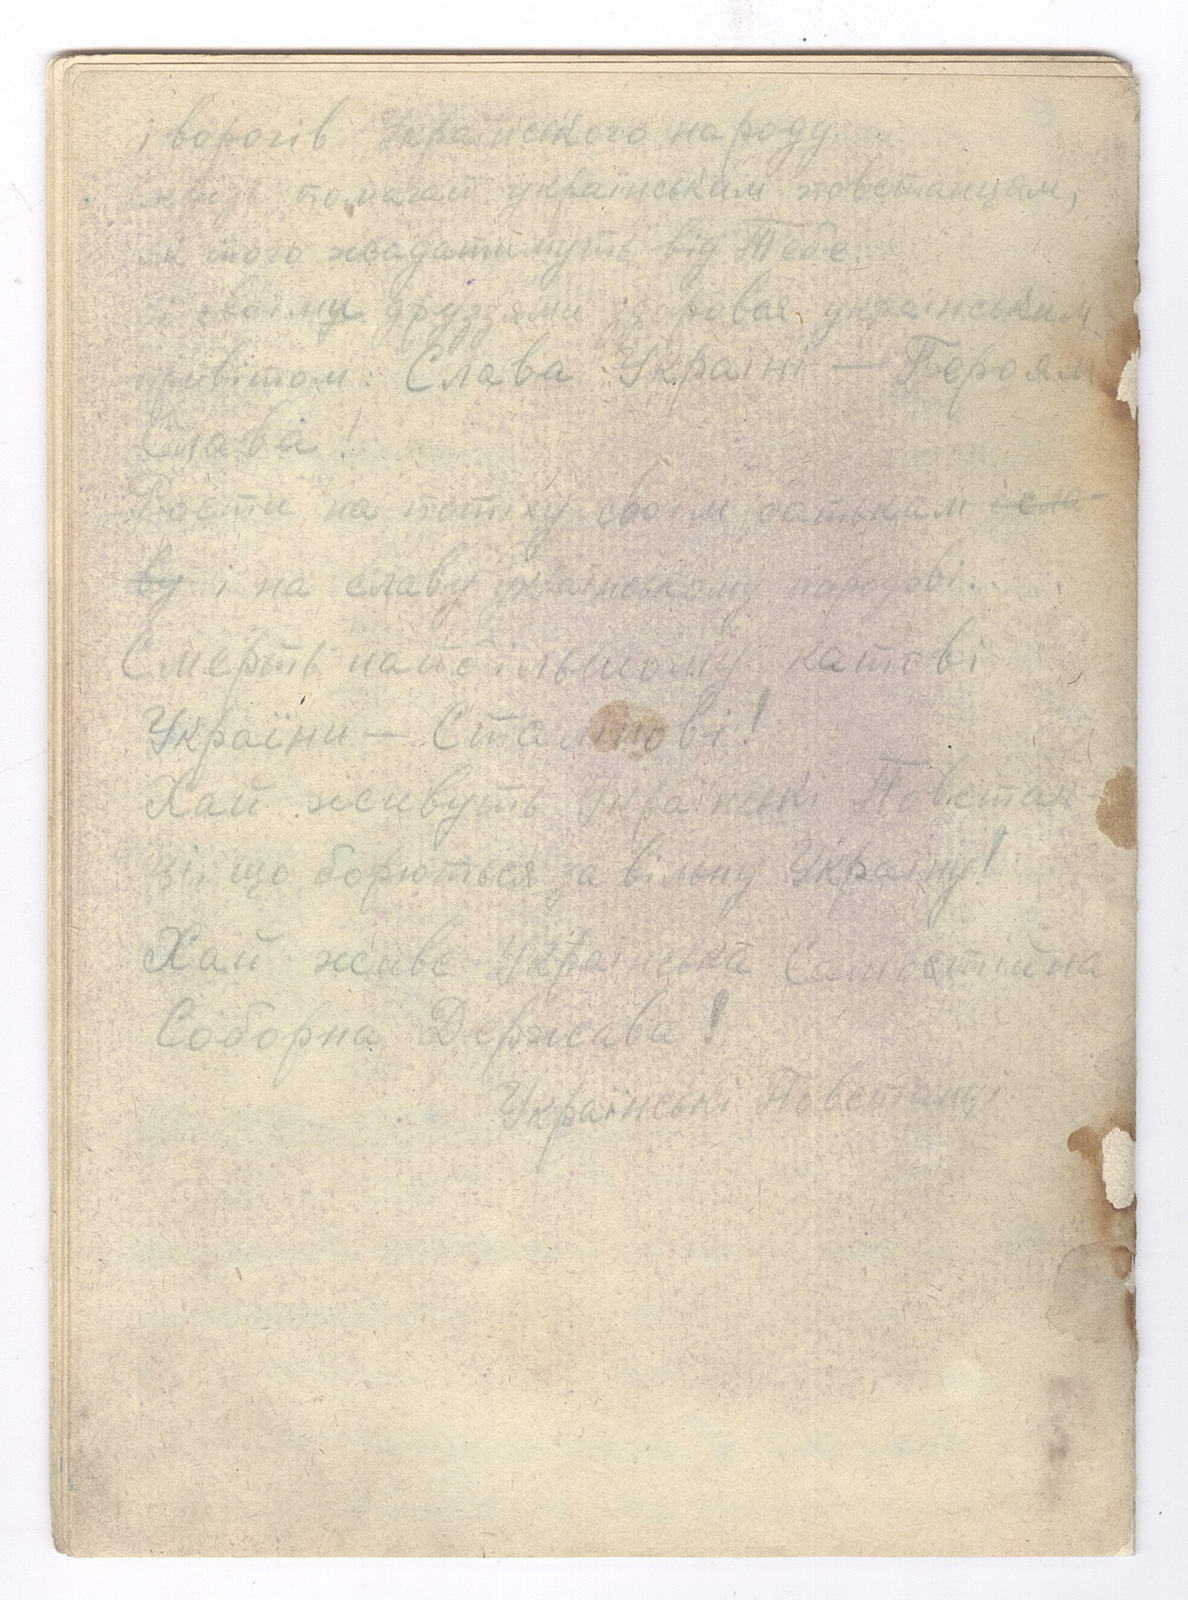 і ворогів Українського народу.
помагай українським повстанцям,
як того жадатимуть від Тебе.
Зі своїми друзями здоровая українським
привітом: Слава Україні — Героям
Слава!
Рости на потіху своїм батькам і сла-
ву і на славу українському народові.
Смерть найбільшому катові
України — Сталінові!
Хай живуть Українські Повстан-
ці, що борються за вільну Україну!
Хай живе Українська Самостійна
Соборна Держава!
Українські Повстанці